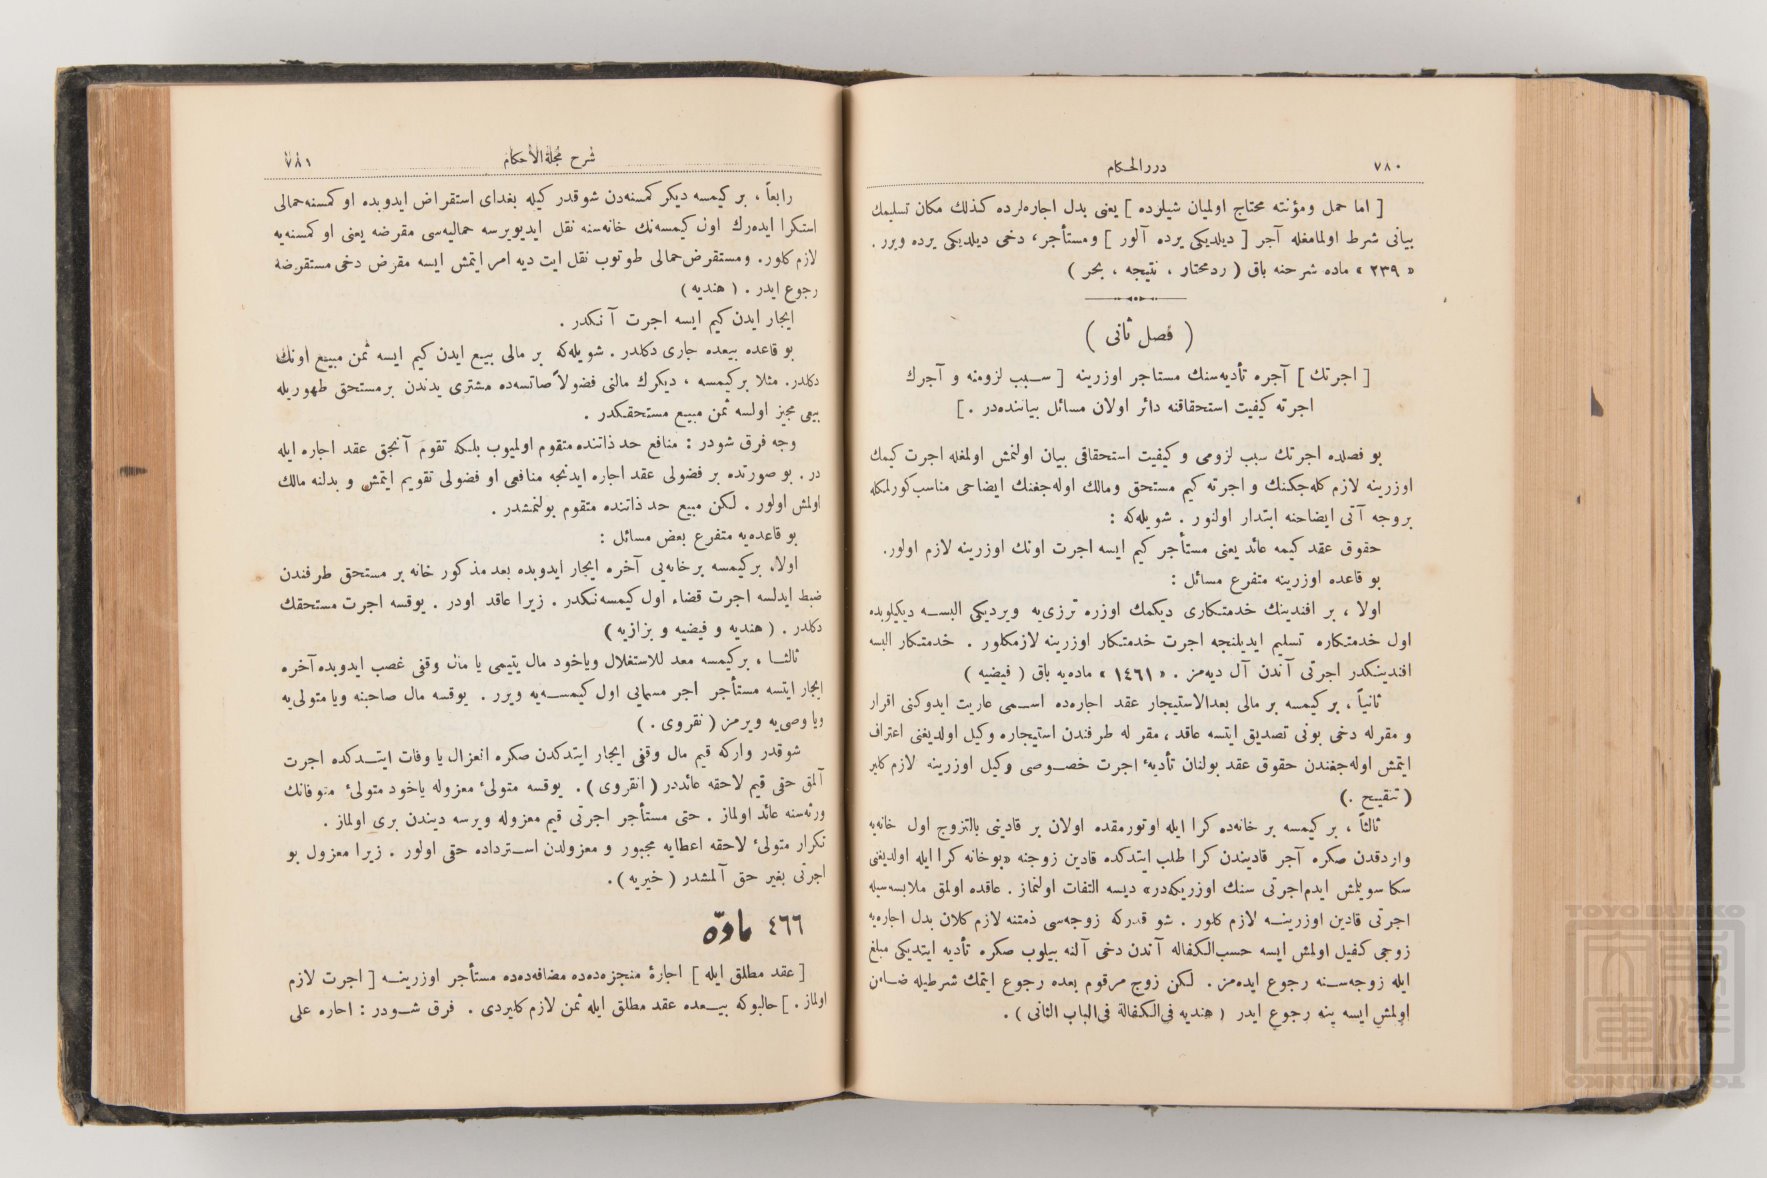 ٧٨٠
دررالحكام
[ اما حمل ومؤنته محتاج اولميان شيلرده ] يعنى بدل اجاره‌لرده كذلك مكان تسليمك
بيانى شرط اولمامغله آجر [ ديلديكى يرده آلور ] ومستأجر، دخى ديلديكى يرده ويرر .
« ٢٣٩ » ماده شرحنه باق ( ردمختار ، نتيجه ، بحر )
( فصل ثانى )
[ اجرتك ] آجره تأديه‌سنك مستاجر اوزرينه [ سبب لزومنه و آجرك
اجرته كيفيت استحقاقنه دائر اولان مسائل بياننده‌در . ]
بو فصلده اجرتك سبب لزومى و كيفيت استحقاقى بيان اولنمش اولمغله اجرت كيمك
اوزرينه لازم كله‌جكنك و اجرته كيم مستحق ومالك اوله‌جغنك ايضاحى مناسب كورلمكله
بروجه آتى ايضاحنه ابتدار اولنور . شويله‌كه :
حقوق عقد كيمه عائد يعنى مستأجر كيم ايسه اجرت اونك اوزرينه لازم اولور.
بو قاعده اوزرينه متفرع مسائل :
اولا ، بر افندينك خدمتكارى ديكمك اوزره ترزى‌يه ويرديكى البسه ديكيلوبده
اول خدمتكاره تسليم ايديلنجه اجرت خدمتكار اوزرينه لازمكلور . خدمتكار البسه
افندينكدر اجرتى آندن آل ديه‌مز . « ١٤٦١ » ماده‌يه باق ( فيضيه )
ثانياً ، بر كيمسه بر مالى بعدالاستيجار عقد اجاره‌ده اسمى عاريت ايدوكنى اقرار
و مقرله دخى بونى تصديق ايتسه عاقد ، مقر له طرفندن استيجاره وكيل اولديغنى اعتراف
ايتمش اوله‌جغندن حقوق عقد بولنان تأديهٔ اجرت خصوصى وكيل اوزرينه لازم كلير
( تنقيح .)
ثالثاً ، بر كيمسه بر خانه‌ده كرا ايله اوتورمقده اولان بر قادينى بالتزوج اول خانه‌يه
واردقدن صكره آجر قاديندن كرا طلب ايتدكده قادين زوجنه «بوخانه كرا ايله اولديغنى
سكا سويلمش ايدم‌اجرتى سنك اوزريكه‌در» ديسه التفات اولنماز . عاقده اولمق ملابسه‌سيله
اجرتى قادين اوزرينه لازم كلور . شو قدركه زوجه‌سى ذمتنه لازم كلان بدل اجاره‌يه
زوجى كفيل اولمش ايسه حسب‌الكفاله آندن دخى آلنه بيلوب صكره تأديه ايتديكى مبلغ
ايله زوجه‌سنه رجوع ايده‌مز . لكن زوج مرقوم بعده رجوع ايتمك شرطيله ضامن
اولمش ايسه ينه رجوع ايدر ( هنديه فى‌الكفالة فى‌الباب الثانى ) .
شرح مجلةالأحكام
٧٨١
رابعاً ، بر كيمسه ديكر كمسنه‌دن شوقدر كيله بغداى استقراض ايدوبده او كمسنه‌حمالى
استكرا ايده‌رك اون كيمسه‌نك خانه‌سنه نقل ايديويرسه حماليه‌سى مقرضه يعنى او كمسنه‌يه
لازم كلور. ومستقرض‌حمالى طوتوب نقل ايت ديه امر ايتمش ايسه مقرض دخى مستقرضه
رجوع ايدر . ( هنديه )
ايجار ايدن كيم ايسه اجرت آنكدر .
بو قاعده بيعده جارى دكلدر . شويله‌كه بر مالى بيع ايدن كيم ايسه ثمن مبيع اونك
دكلدر. مثلا بر كيمسه ، ديكرك مالنى فضولاً صاتسه‌ده مشترى يدندن بر مستحق ظهوريله
بيعى مجيز اولسه ثمن مبيع مستحقكدر .
وجه فرق شودر : منافع حد ذاتنده متقوم اولميوب بلكه تقوم آنجق عقد اجاره ايله
در . بو صورتده بر فضولى عقد اجاره ايدنجه منافعى او فضولى تقويم ايتمش و بدلنه مالك
اولمش اولور . لكن مبيع حد ذاتنده متقوم بولنمشدر .
بو قاعده‌يه متفرع بعض مسائل :
اولا، بر كيمسه بر خانه‌يى آخره ايجار ايدوبده بعد مذكور خانه بر مستحق طرفندن
ضبط ايدلسه اجرت قضاء اول كيمسه‌نكدر . زيرا عاقد اودر . يوقسه اجرت مستحقك
دكلدر . ( هنديه و فيضيه و بزازيه )
ثالثا ، بر كيمسه معد للاستغلال وياخود مال يتيمى يا مال وقفى غصب ايدوبده آخره
ايجار ايتسه مستأجر اجر مسمايى اول كيمسه‌يه ويرر . يوقسه مال صاحبنه ويا متولى‌يه
ويا وصى‌يه ويرمز ( نقروى . )
شوقدر واركه قيم مال وقفى ايجار ايتدكدن صكره انعزال يا وفات ايتدكده اجرت
آلمق حقى قيم لاحقه عائددر ( انقروى ) . يوقسه متولىٔ معزوله ياخود متولىٔ متوفانك
ورثه‌سنه عائد اولماز . حتى مستأجر اجرتى قيم معزوله ويرسه ديندن برى اولماز .
تكرار متولىٔ لاحقه اعطايه مجبور و معزولدن استرداده حقى اولور . زيرا معزول بو
اجرتى بغير حق آلمشدر ( خيريه ) .
٤٦٦ مادّه
[ عقد مطلق ايله ] اجارهٔ منجزه‌ده‌ده مضافه‌ده‌ده مستأجر اوزرينه [ اجرت لازم
اولماز . ] حالبوكه بيعده عقد مطلق ايله ثمن لازم كليردى . فرق شودر : اجاره على
TOYO BUNKO
東洋文庫
TOYO BUNKO